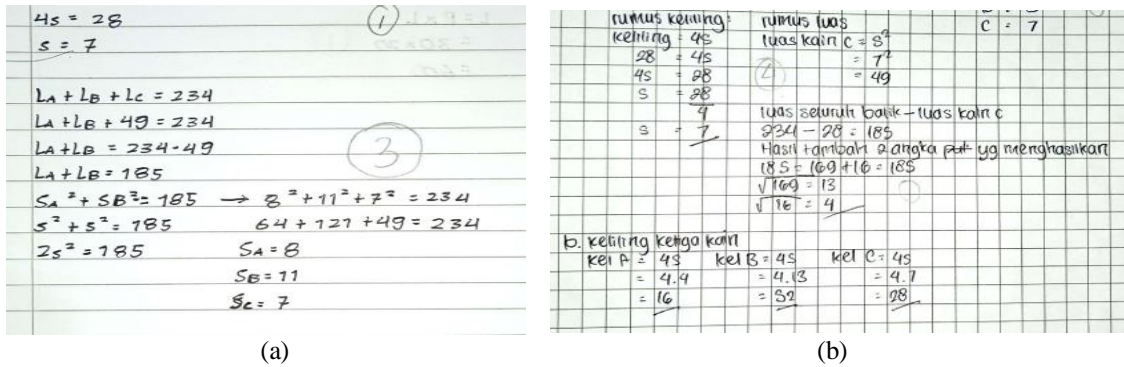 4s = 28
①
s = 7
LA + LB + LC = 234
LA + LB + 49 = 234
LA + LB = 234 - 49
③
LA + LB = 185
SA² + SB² = 185 → 8² + 11² + 7² = 234
s² + s² = 185 64 + 121 + 49 = 234
2s² = 185 SA = 8
SB = 11
Sc = 7
(a)
C = 7
rumus keliling:
keliling = 4s
28 = 4s
4s = 28
s = 28
4
s = 7
rumus luas
luas kain C = s²
= 7²
④
= 49
luas seluruh batik - luas kain c
234 - 28 = 185
Hasil tambah 2 angka yg menghasilkan
185 = 169 + 16 = 185
√169 = 13
√16 = 4
b. keliling ketiga kain
kel A = 4s kel B = 4s kel C = 4s
= 4.4 = 4.13 = 4.7
= 16 = 52 = 28
(b)